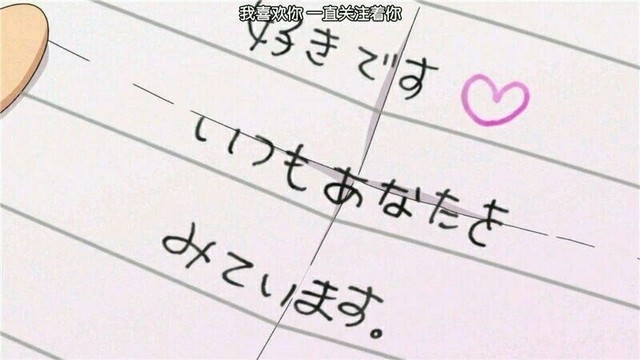 我喜欢你 一直关注着你
好きです♡
いつもあなたを
みています。